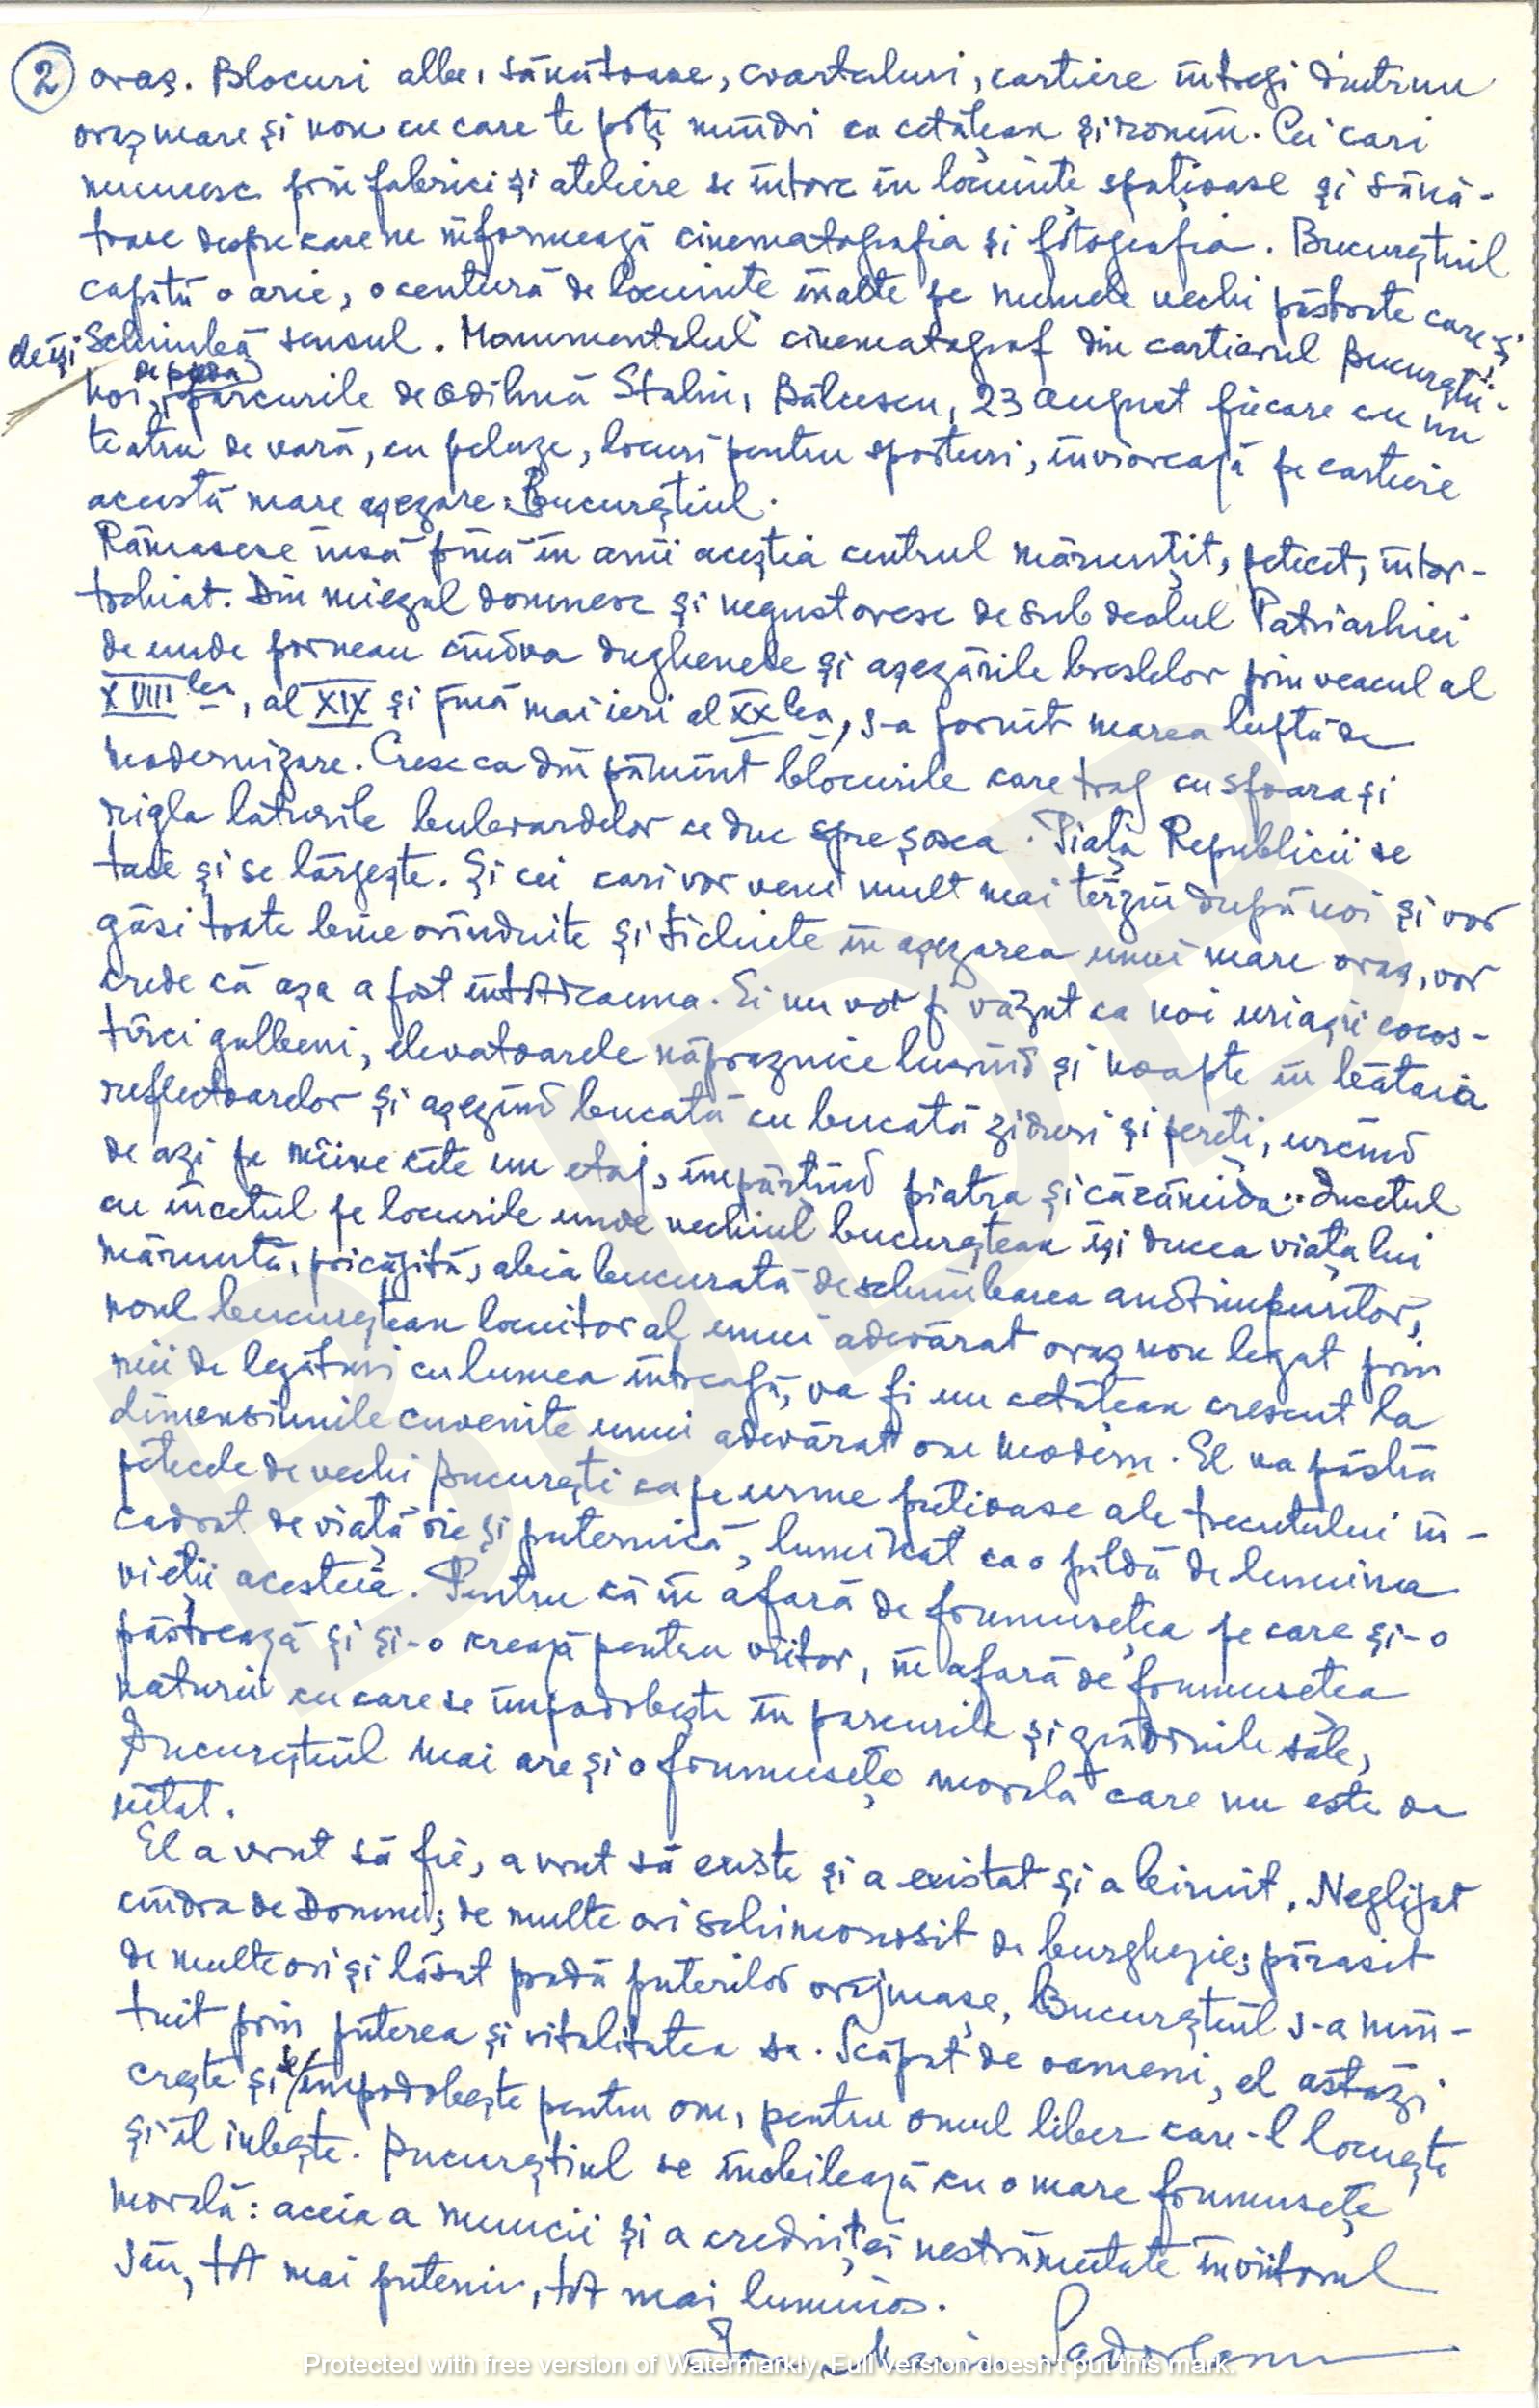 2 oraș. Blocuri albe, sănătoase, cvartaluri, cartiere întregi dintr'un
oraș mare și nou cu care te poți mîndri ca cetățean și ca om. Cei cari
muncesc prin fabrici și ateliere se întorc în locuințe spațioase și sănă-
toase despre care ne informează cinematografia și fotografia. Bucureștiul
capătă o arie, o centură de locuințe înalte pe numele vechi păstrate care-și
deși schimbă sensul. Monumentalul cinematograf din cartierul Bucureștii-
noi, parcurile de odihnă Stalin, Bălcescu, 23 August fiecare cu un
teatru de vară, cu peluze, locuri pentru sporturi, înviorează pe cartiere
această mare așezare: Bucureștiul.
Rămăsese însă pînă în anii aceștia centrul mărunțit, petecit, întor-
tochiat. Din miezul domnesc și negustoresc de sub dealul Patriarhiei
de unde porneau cîndva dughenele și așezările breslelor prin veacul al
XVIII lea, al XIX și pînă mai ieri al XX lea, s-a pornit marea luptă de
modernizare. Cresc ca din pămînt blocurile care trag cu sfoara și
rigla laturile bulevardelor ce duc spre șosea. Piața Republicii se
taie și se lărgește. Și cei cari vor veni mult mai tîrziu după noi și vor
găsi toate bine orînduite și ticluite în așezarea unui mare oraș, vor
crede că așa a fost întotdeauna. Ei nu vor fi văzut ca noi uriașii cocos-
tîrci galbeni, elevatoarele năpraznice lucrînd și noapte în bătaia
reflectoarelor și așezînd bucată cu bucată ziduri și pereți, urcînd
de azi pe mîine cîte un etaj, împărțind piatra și cărămida. Încetul
cu încetul pe locurile unde vechiul bucureștean își ducea viața lui
măruntă, pricăjită, abia bucurată de schimbarea anotimpurilor,
noul bucureștean locuitor al unui adevărat oraș nou legat prin
mii de legături cu lumea întreagă, va fi un cetățean crescut la
dimensiunile cuvenite unui adevărat om modern. El va păstra
petecele de vechi București ca pe urme prețioase ale trecutului în-
cadrat de viață vie și puternică, luminat ca o pildă de lumina
vieții acesteia. Pentru că în afară de frumusețea pe care și-o
păstrează și și-o crează pentru viitor, în afară de frumusețea
naturii cu care se împodobește în parcurile și grădinile sale,
Bucureștiul mai are și o frumusețe morală care nu este de
uitat.
El a vrut să fie, a vrut să existe și a existat și a biruit. Neglijat
cîndva de Domni; de multe ori schimonosit de burghezie; părăsit
de multe ori și lăsat pradă puterilor vrăjmașe, Bucureștiul s-a mîn-
tuit prin puterea și vitalitatea sa. Scăpat de oameni, el astăzi
crește și se împodobește pentru om, pentru omul liber care-l locuește
și îl iubește. Bucureștiul se mobilează cu o mare frumusețe
morală: aceia a muncii și a credinței nestrămutate în viitorul
său, tot mai puternic, tot mai luminos.
Ion Marin Sadoveanu
BJDB
Protected with free version of Watermarkly. Full version doesn't put this mark.